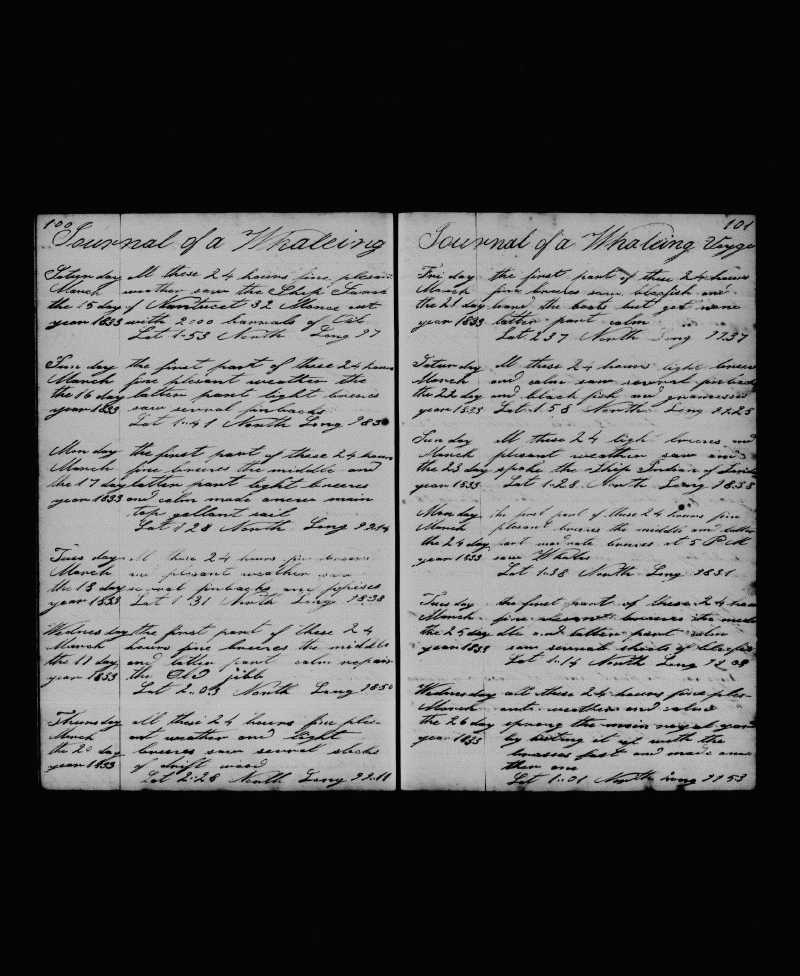 100
Journal of a Whaleing
Saturday All these 24 hours fine plesant
March weather saw the Ship
the 15 day of Nantucket 32 Months out
year 1833 with 2000 barrals of Oil
Lat 1.53 North Long 97
Sunday the first part of these 24 hours
March fine plesant weather the
the 16 day latter part light breezes
year 1833 saw sevral finbacks
Lat 1.41 North Long 98
Monday the first part of these 24 hours
March fine breezes the middle and
the 17 day latter part light breezes
year 1833 and calm made anew main
top gallant sail
Lat 1 28 North Long 99
Tuesday All these 24 hours fine breezes
March and plesant weather saw
the 18 day sevral finbacks and
year 1833 Lat 1 31 North Long 98.38
Wednesday the first part of these 24
March hours fine breezes the middle
the 19 day and latter part calm repair
year 1833 the Old jibb
Lat 2.03 North Long 98.50
Thursday All these 24 hours fine ples
March ant weather and light
the 20 day breezes saw sevral
year 1833 of drift wood
Lat 2.28 North Long 99.11
101
Journal of a Whaleing Voyge
Friday the first part of these 24 hours
March fine breezes saw blacfish and
the 21 day the boats but got none
year 1833 latter part calm
Lat 2 37 North Long 99.37
Saturday All these 24 hours light breezes
March and calm saw sevral finbacks
the 22 day and black fish and
year 1833 Lat 1.58 North Long 99.25
Sunday All these 24 ligh breezes and
March plesant weather saw and
the 23 day spoke the Ship Indian of
year 1833 Lat 1.28 North Long 98.58
Monday the first part of these 24 hours fine
March plesant breezes the middle and latter
the 24 day part moderate breezes at 5 PM
year 1833 saw Whales
Lat 1.38 North Long 9831
Tuesday the first part of these 24 hours
March fine plesant breezes the midd
the 25 day dle and latter part calm
year 1833 saw sevral shoals of blacfish
Lat 1.14 North Long 99 08
Wednesday all these 24 hours fine ples
March ant weather and calm
the 26 day sprung the main royal yard
year 1833 by it up with the
brasses fast and made ano
ther one
Lat 1.01 North Long 99 53